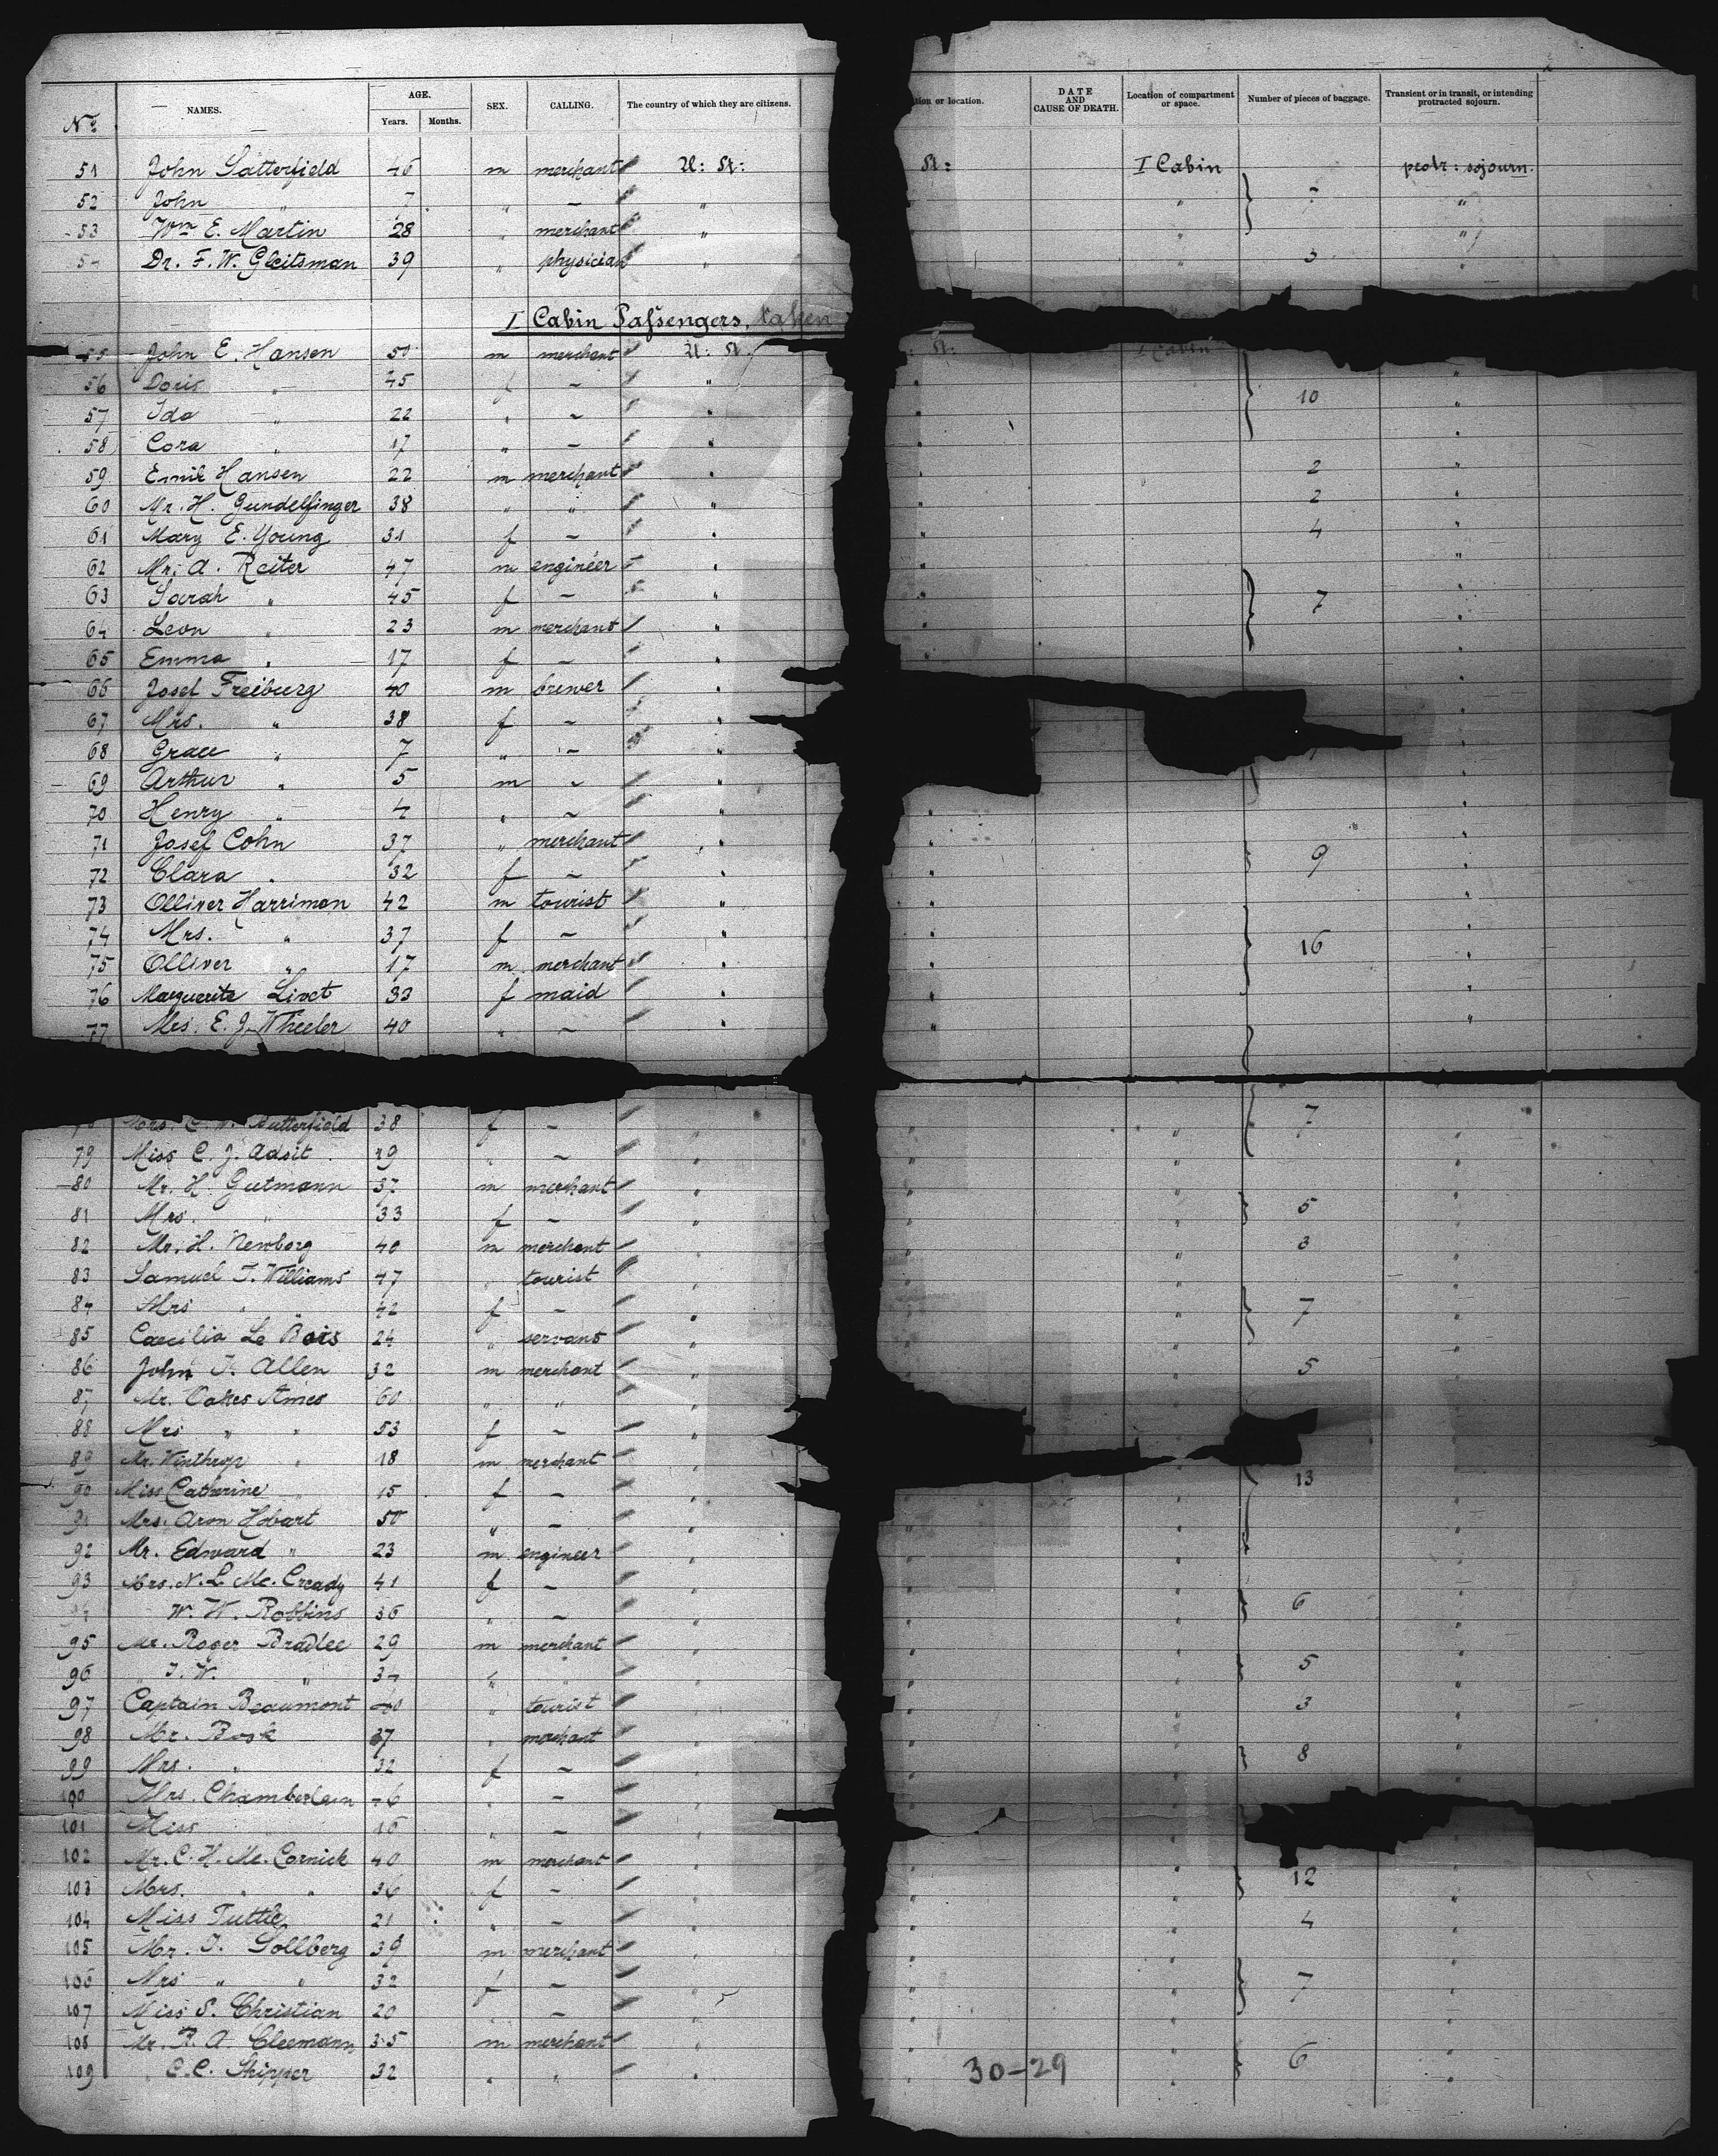 No. NAMES. AGE. Years. Months. SEX. CALLING. The country of which they are citizens. tion or location. DATE AND CAUSE OF DEATH. Location of compartment or space. Number of pieces of baggage. Transient or in transit, or intending protracted sojourn.
51 John Satterfield m merchant U: St: St: I Cabin protr: sojourn.
52 John " 7 " – " " "
53 Wm E. Martin 28 " merchant " " "
Dr. F. W. Gleitsman 39 " physician " " 3 "
I Cabin Passengers,
John E. Hansen 50 m merchant U: St. St: I Cabin
56 Doris " 45 f – " " 10 "
57 Ida " 22 " – " " "
58 Cora " 17 " – " " "
59 Emil Hansen 22 m merchant " " 2 "
60 Mr. H. Gundelfinger 38 " " " " 2 "
61 Mary E. Young 31 f – " " 4 "
62 Mr. A. Reiter 47 m engineer " " "
63 Sarah " 45 f – " " 7 "
64 Leon " 23 m merchant " " "
65 Emma " 17 f – " " "
66 Josef Freiburg 40 m brewer " "
67 Mrs. " 38 f – " "
68 Grace " 7 " – " "
69 Arthur " 5 m – " "
70 Henry " 4 " – " " "
71 Josef Cohn 37 " merchant " " 9 "
72 Clara " 32 f – " " "
73 Olliver Harriman 42 m tourist " " "
74 Mrs. " 37 f – " " 16 "
75 Olliver " 17 m merchant " " "
76 Marguerite Livet 33 f maid " " "
77 Mrs. E. J. Wheeler 40 " – " " "
Mrs. Butterfield 38 f – " " " 7 "
79 Miss C. J. Adsit 19 " – " " " "
80 Mr. H. Gutmann 37 m merchant " " " "
81 Mrs. " 33 f – " " " 5 "
82 Mr. H. Newborg 40 m merchant " " " 3 "
83 Samuel T. Williams 47 " tourist " " "
84 Mrs " " 42 f – " " " 7 "
85 Caecilia Le Bois 24 " servant " " " "
86 John T. Allen 32 m merchant " " 5 "
87 Mr. Oakes Ames 60 " " " " "
88 Mrs " " 53 f – " "
89 Mr. Winthrop " 18 m merchant " "
90 Miss Catherine " 15 f – " " 13 "
Mrs. Aron Hobart 50 " – " " " "
92 Mr. Edward " 23 m engineer " " " "
93 Mrs. N. L. Mc. Cready 41 f – " " " "
W. W. Robbins 36 " – " " " 6 "
95 Mr. Roger Bradlee 29 m merchant " " " "
96 " T. W. " " " " " " 5 "
97 Captain Beaumont " tourist " " " 3 "
98 Mr. 37 " merchant " " " "
99 Mrs. " 32 f – " " " 8 "
100 Mrs. Chamberlain " – " " " "
101 Miss " " – " " "
102 Mr. C. H. Mc. Cornick 40 m merchant " " " "
103 Mrs. " " 36 f – " " " 12 "
104 Miss Tuttle 21 " – " " " 4 "
105 Mr. I. Sollberg 39 m merchant " " " "
106 Mrs " " 32 f – " " " 7 "
107 Miss S. Christian 20 " – " " " "
108 Mr. R. A. Cleemann 35 m merchant " " " "
109 " C. C. Skipper 32 " " " 30–29 " 6 "